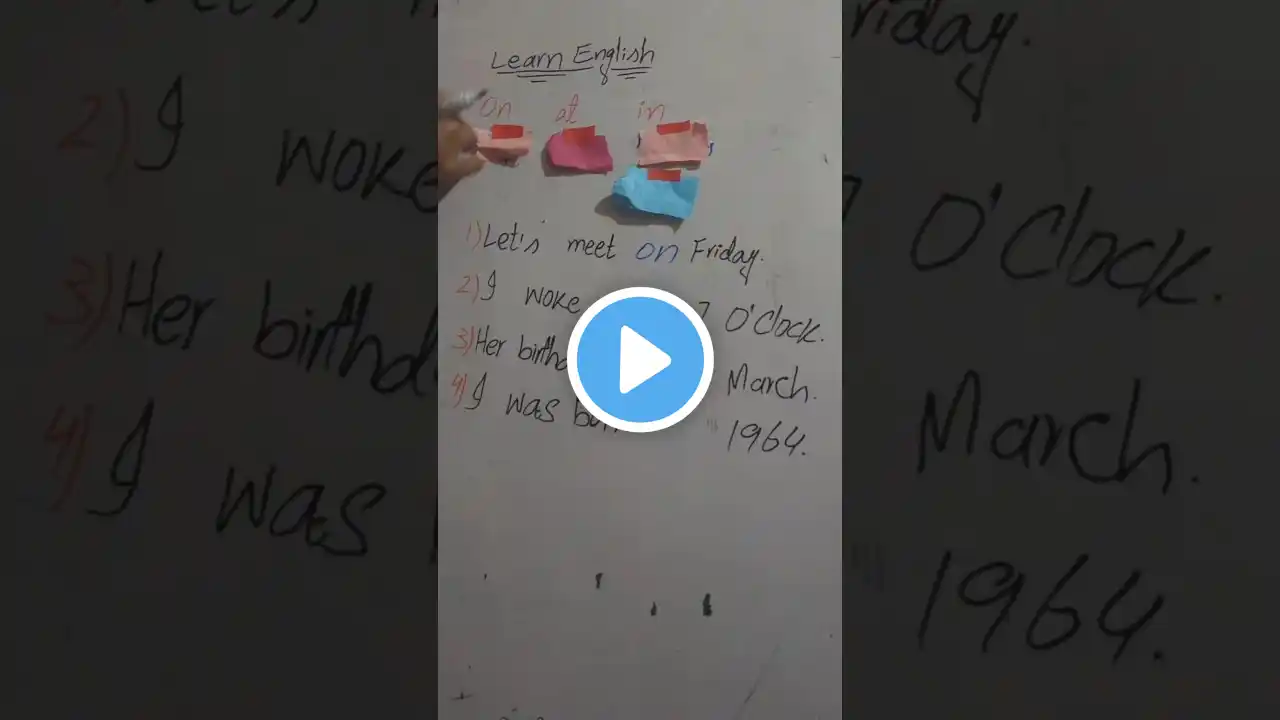 Learn English
on at in
1) Let's meet on Friday.
2) I woke 7 O'Clock.
3) Her birthd March.
4) I was 1964.